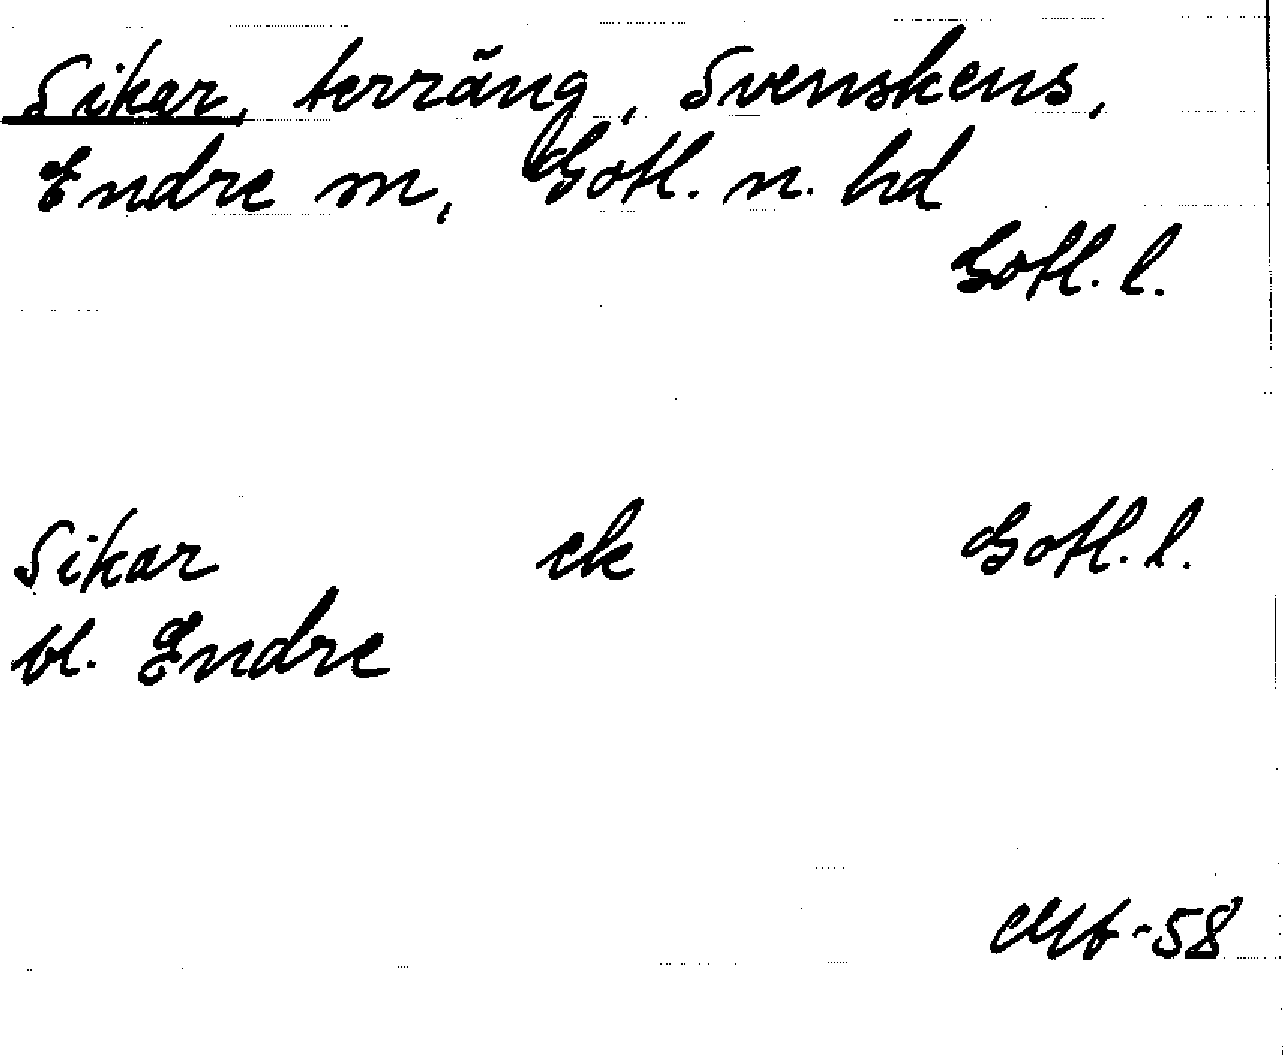 Sikar, terräng, Svenskens,
Endre m, Gotl. n. hd
Gotl. l.
Sikar ek Gotl. l.
bl. Endre
-58